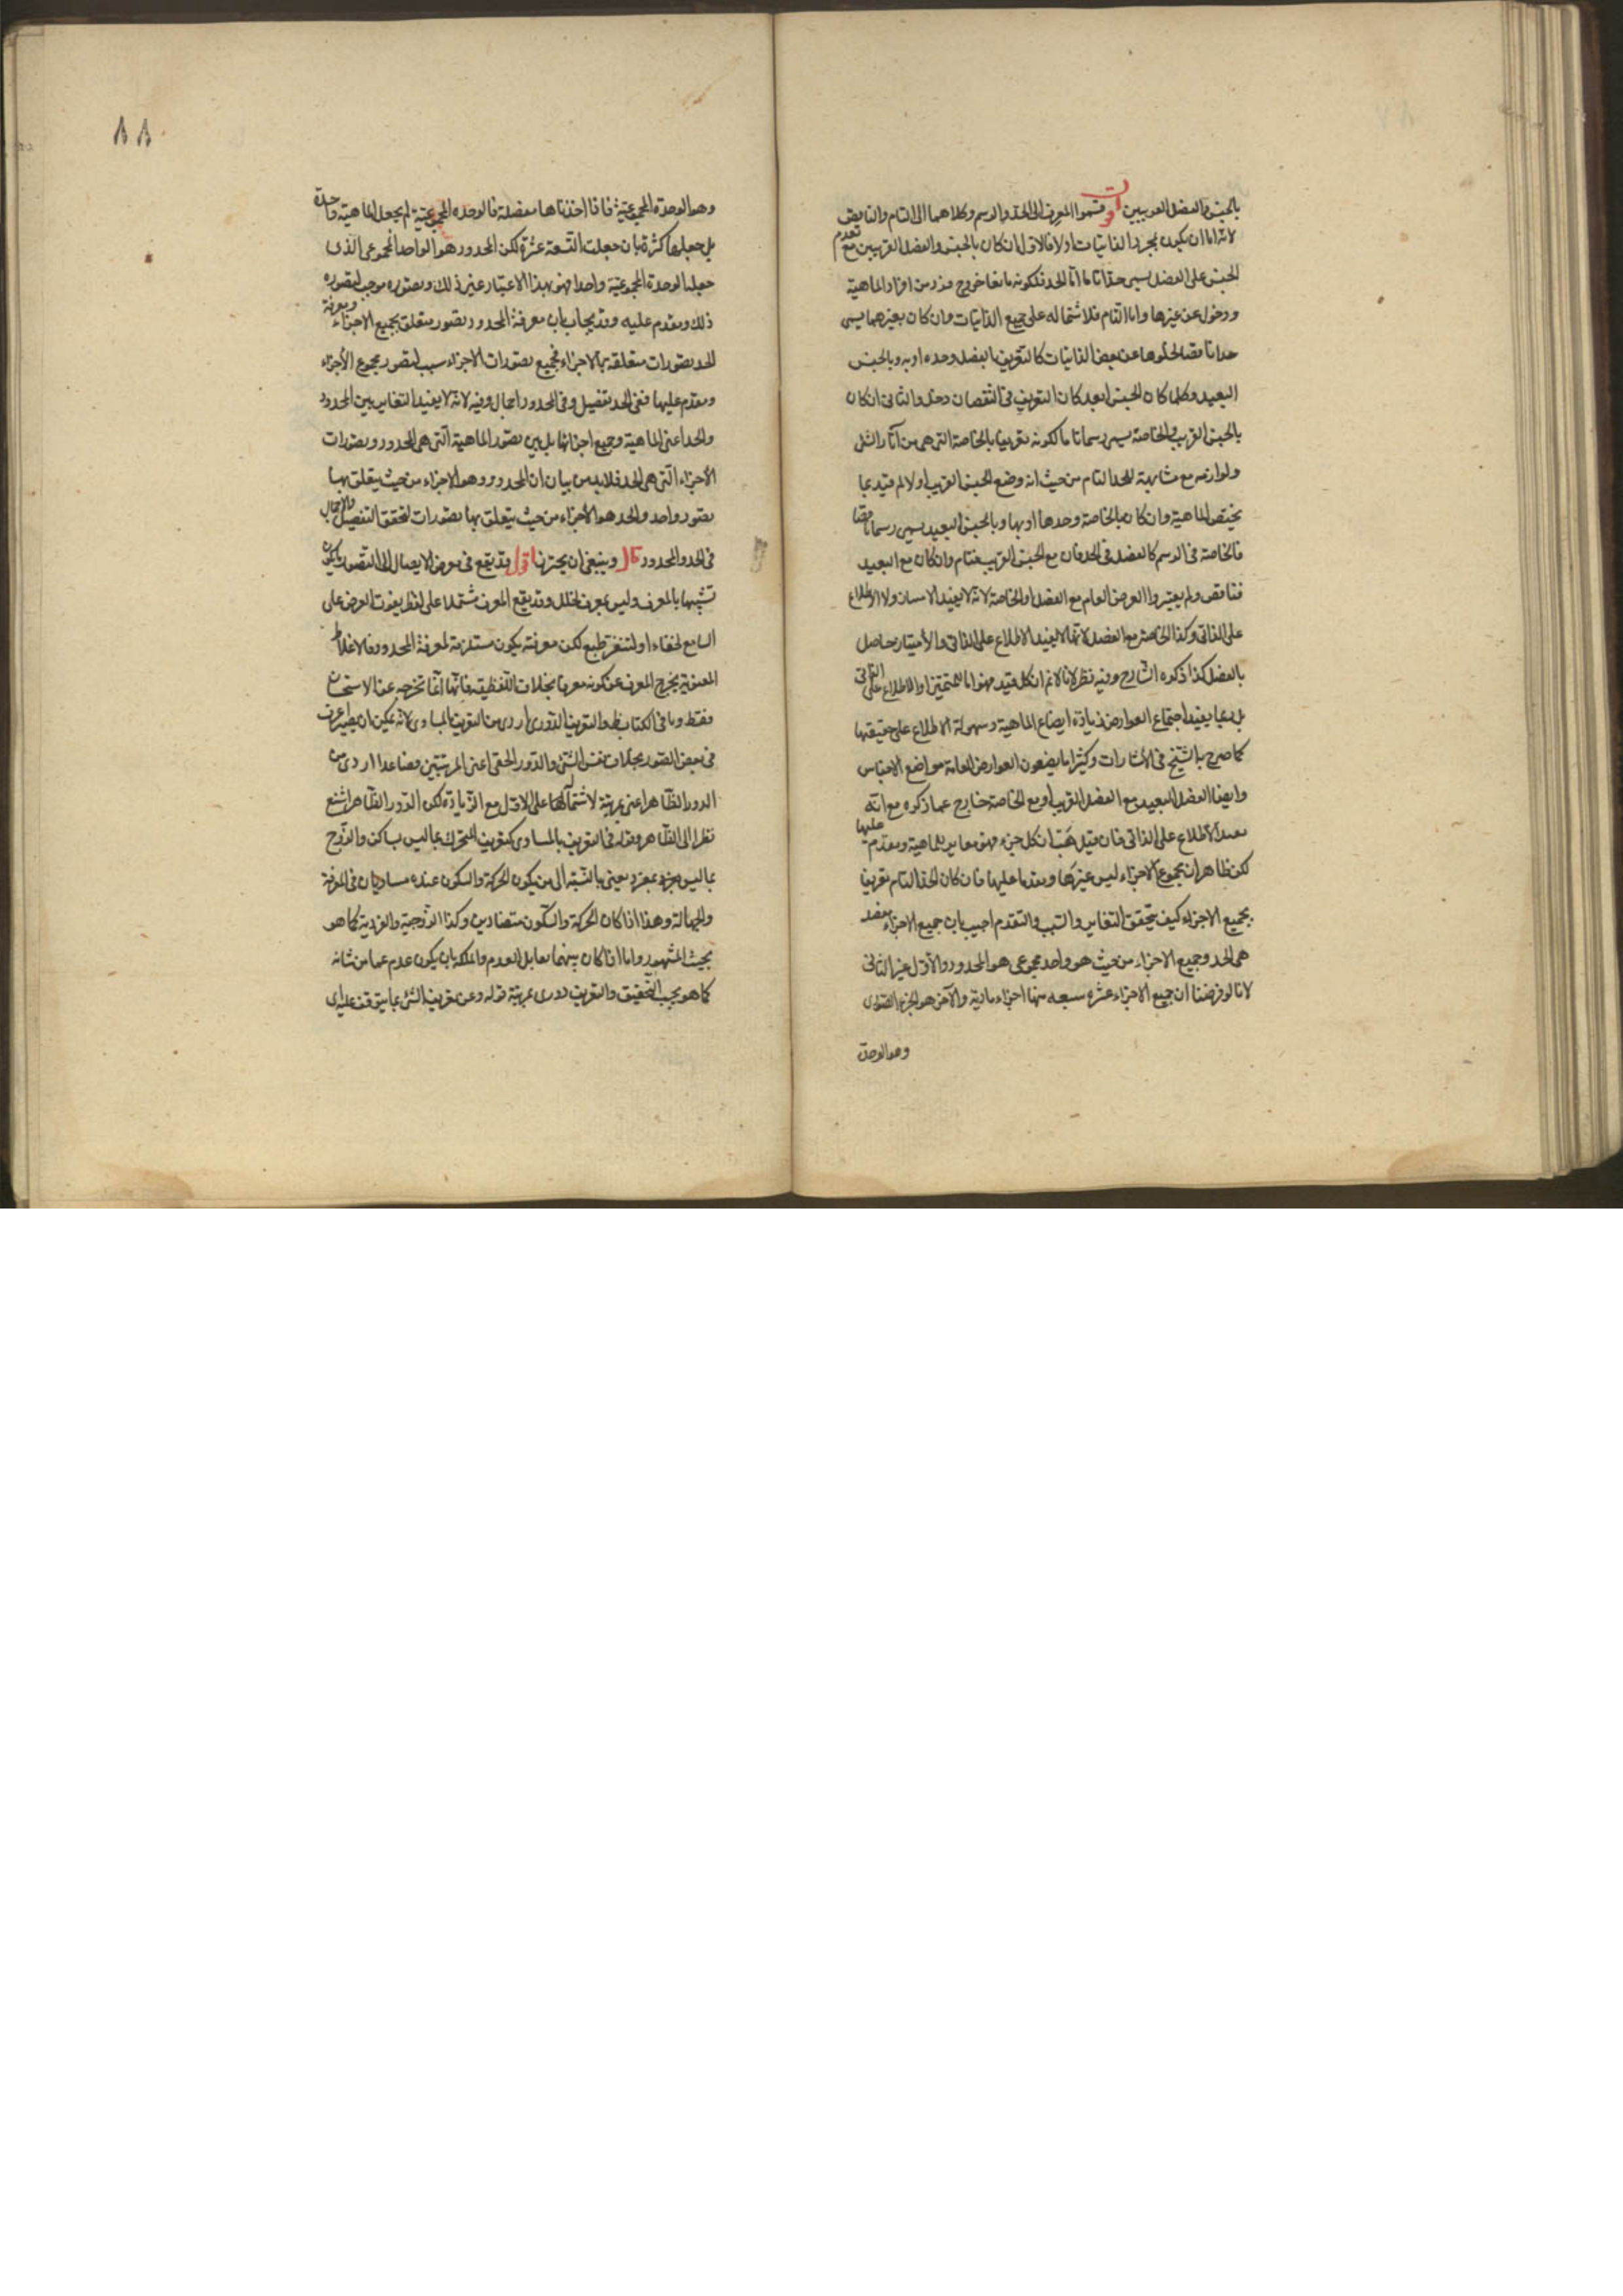 بالجنس والفصل القريبين اقول قسموا المعرف الى الحد والرسم وكلاهما الى التام والناقص
لانه اما ان يكون بمجرد الذاتيات او لا فالاول ان كان بالجنس والفصل القريبين مع تقدم
الجنس على الفصل يسمى حدا تاما اما الحد فلكونه مانعا خروج فرد من افراد الماهية
ودخول عن غيرها واما التام فلاشتماله على جميع الذاتيات وان كان بغيرهما يسمى
حدا ناقصا لخلوها عن بعض الذاتيات كالتعريف بالفصل وحده او به وبالجنس
البعيد وكلما كان الجنس ابعد كان التعريف فى النقصان دخل والثانى ان كان
بالجنس القريب والخاصة يسمى رسما تاما لكونه تعريفا بالخاصة التى هى من آثار الشئ
ولوازمه مع مشابهة للحد التام من حيث انه وضع الجنس القريب اولا ثم قيد بما
يختص الماهية وان كان بالخاصة وحدها او بها وبالجنس البعيد يسمى رسما ناقصا
فالخاصة فى الرسم كالفصل فى الحد فان مع الجنس القريب فتام وان كان مع البعيد
فناقص ولم يعتبروا العرض العام مع الفصل او الخاصة لانه لا يفيد الامتياز ولا الاطلاع
على الذاتى وكذا الخاصة مع الفصل لانها لا يفيد الاطلاع على الذاتى والامتياز حاصل
بالفصل كذا ذكره الشارح وفيه نظر لانا لا نم ان كل قيد فهو اما للتميز او للاطلاع على الذاتى
بل ربما يفيد اجتماع العوارض زيادة ايضاح الماهية وسهولة الاطلاع على حقيقتها
كما صرح به الشيخ فى الاشارات وكثيرا ما يضعون العوارض العامة مواضع الاجناس
وايضا الفصل البعيد مع الفصل القريب او مع الخاصة خارج عما ذكره مع انه
يفيد الاطلاع على الذاتى فان قيل هب ان كل جزء فهو مغاير للماهية ومقدم عليها
لكن ظاهر ان مجموع الاجزاء ليس غيرها ومقدما عليها فان كان الحد التام تعريفا
بجميع الاجزاء كيف يتحقق التغاير والسبب والتقدم اجيب بان جميع الاجزاء مفصلة
هى الحد وجميع الاجزاء من حيث هو واحد مجموعى هو المحدود والاول غير الثانى
لانا لو فرضنا ان جميع الاجزاء عشرة سبعة منها اجزاء مادية والآخر هو الجزء الصورى
وهو الوحدة
٨٨
وهو الوحدة المجموعية فاذا اخذناها مفصلة فالوحدة المجموعية لم يجعل الماهية واحدة
بل جعلها كثرة بان جعلت التسعة عشرة لكن المحدود هو الواحد المجموعى الذى
جعله الوحدة المجموعية واحدا فهو بهذا الاعتبار غير ذلك وتصوره موجب لتصوره
ذلك ومقدم عليه وقد يجاب بان معرفة المحدود تصور متعلق بجميع الاجزاء ومعرفة
الحد تصورات متعلقة بالاجزاء فجميع تصورات الاجزاء سبب لتصور مجموع الاجزاء
ومقدم عليها ففى الحد تفصيل وفى المحدود اجمال وفيه لانه لا يفيد التغاير بين المحدود
والحد اعنى الماهية وجميع اجزائها بل بين تصور الماهية التى هى المحدود وتصورات
الاجزاء التى هى الحد فلا بد من بيان ان المحدود وهو الاجزاء من حيث يتعلق بها
تصور واحد والحد هو الاجزاء من حيث يتعلق بها تصورات لتحقق التفصيل والاجمال
فى الحد والمحدود قال وينبغى ان يحترز اقول قد يقع فى معرض الايصال الى التصور ما يكون
شبيها بالمعرف وليس بمعرف لخلل وقد يقع المعرف مشتملا على لفظ يفوت الغرض على
السامع لخفاء او لتنفر طبع لكن معرفته يكون مستلزمة لمعرفة المحدود فالاغلاط
المعنوية يخرج المعرف عن كونه معرفا بخلاف اللفظية فانها انما تخرجه عن الاستحسان
فقط وما فى الكتاب ظ والتعريف الدورى اردى من التعريف بالمساوى لانه يمكن ان يصير اعرف
فى بعض الصور بخلاف نفس الشئ والدور الخفى اعنى المرتبتين فصاعدا اردى من
الدور الظاهر اعنى بمرتبة لاشتمالها على الاول مع الزيادة لكن الدور الظاهر اشنع
نظرا الى الظاهر وقوله فى التعريف بالمساوى كتعريف المتحرك بما ليس بساكن والزوج
بما ليس بفرد يعنى بالنسبة الى من يكون الحركة والسكون عنده مساويان فى المعرفة
والجهالة وهذا اذا كان الحركة والسكون متضادين وكذا الزوجية والفردية كما هو
بحيث المشهور واما اذا كان بينهما تقابل العدم والملكة بان يكون عدم عما من شانه
كما هو بحسب التحقيق والتعريف دورى بمرتبة قوله وعن تعريف الشئ بما يتوقف عليه اى